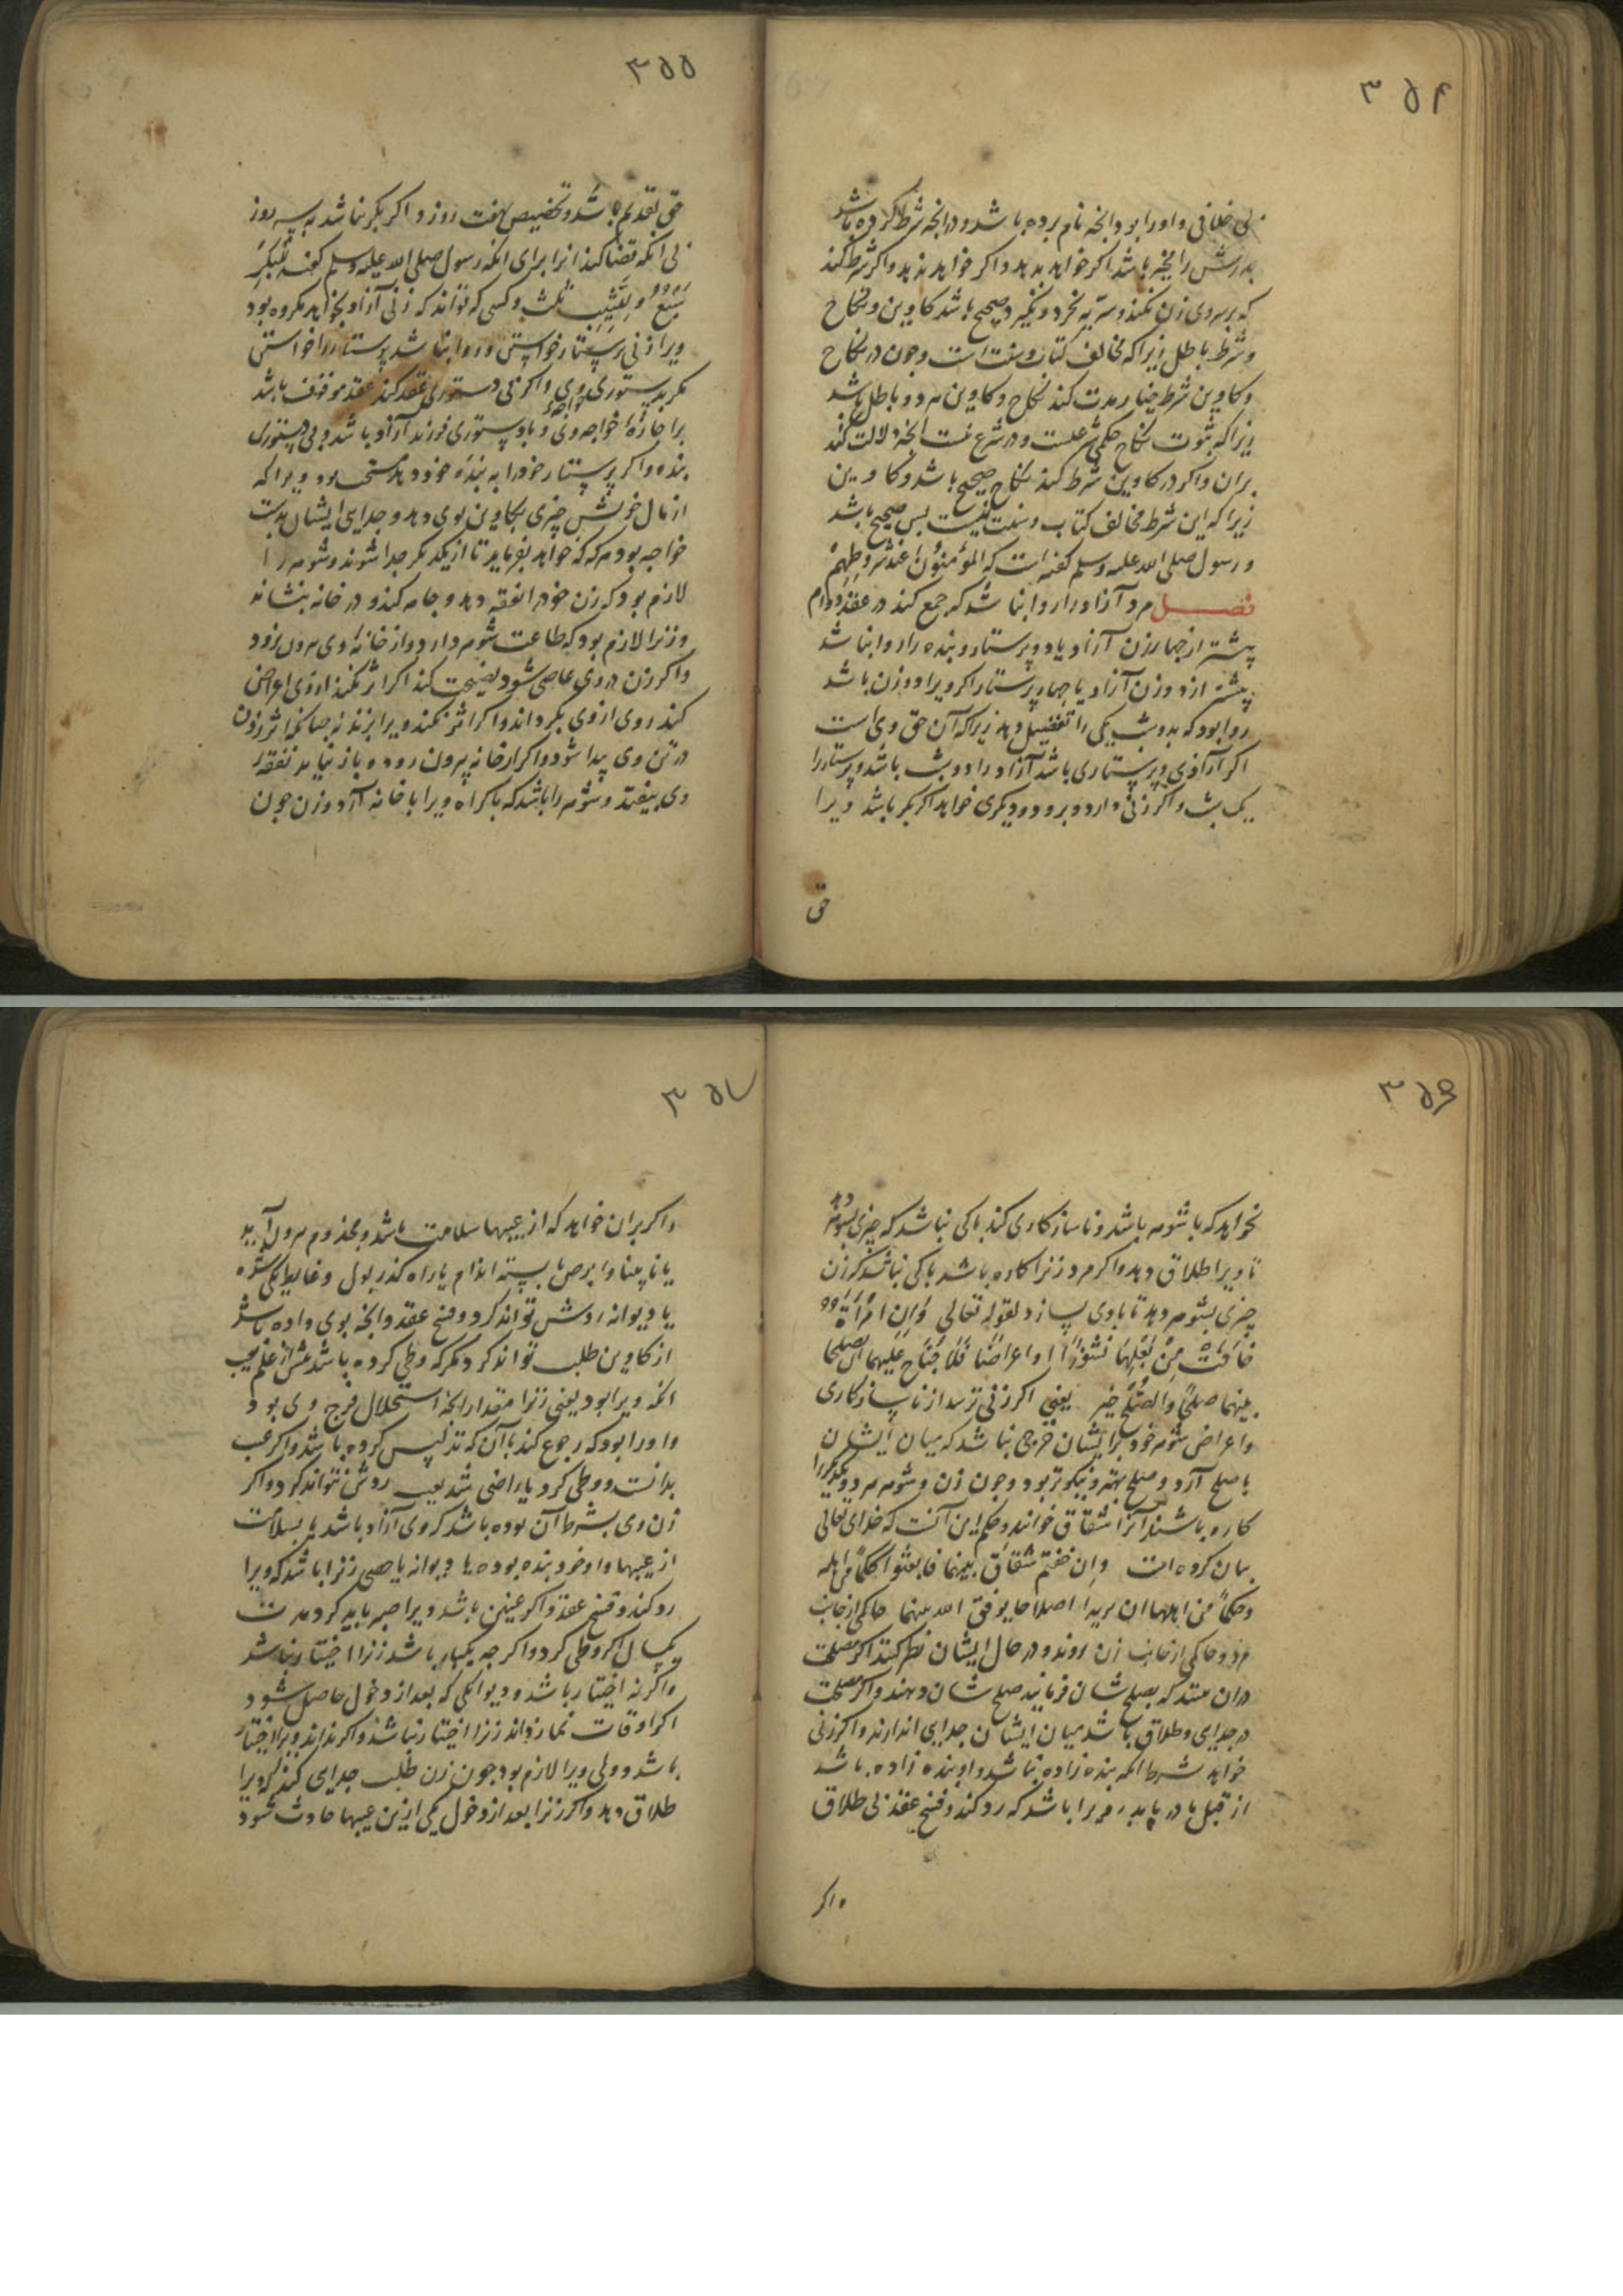 ۳۵۴
بی خلافی و او را بود و انچه نام برده باشد و در انچه شرط کرده باشد
پدرش را مخیر باشد اکر خواهد بدهد و اکر خواهد ندهد و اکر شرط کند
که بر سر وی زن نکند و سریه نخرد و نکیرد صحیح باشد کاوین و نکاح
و شرط باطل زیرا که مخالف کتاب و سنت است و چون در نکاح
و کاوین شرط خیار مدت کند نکاح و کاوین هر دو باطل باشد
زیرا که ثبوت نکاح حکمی شرعیست و در شرع نیست انچه دلالت کند
بران و اکر در کاوین شرط کند نکاح صحیح باشد و کاوین
زیرا که این شرط مخالف کتاب و سنت نیست پس صحیح باشد
و رسول صلی الله علیه وسلم کفته است که المؤمنون عند شروطهم
فصل مرد آزاد را روا نباشد که جمع کند در عقد دوام
پیشتر از چهار زن آزاد یا دو پرستار و بنده را روا نباشد
پیشتر از دو زن آزاد یا چهار پرستار اکر ویرا دو زن باشد
روا بود که بدو شب یکی را تفضیل دهد زیرا که آن حق وی است
اکر آزادی و پرستاری باشد آزاد را دو شب باشد و پرستار را
یک شب و اکر زنی دارد و برود و دیکری خواهد اکر بکر باشد ویرا
حق
۳۵۵
حق تقدیم باشد و تخصیص هفت روز و اکر بکر نباشد به سه روز
بی انکه قضا کند انرا برای انکه رسول صلی الله علیه وسلم کفته للبکر
سبع و للثیب ثلث و کسی که تواند که زنی آزاد بخواهد مکروه بود
ویرا زنی پرستار خواستن و روا نباشد پرستار را خواستن
مکر بدستوری وی و اکر بی دستوری عقد کند عقد موقوف باشد
بر اجازهٔ خواجه وی و بادستوری فرزند آزاد باشد و بی دستوری
بنده و اکر پرستار خود را به بندهٔ خود دهد مستحب بود ویرا که
از مال خویش چیزی بکاوین بوی دهد و جدایی ایشان بدست
خواجه بود هر که که خواهد بفرماید تا از یکدیکر جدا شوند و شوهر را
لازم بود که زن خود را نفقه دهد و جامه کند و در خانه بنشاند
و زنرا لازم بود که طاعت شوهر دارد و از خانهٔ وی بیرون نرود
و اکر زن در وی عاصی شود نصیحت کند اکر اثر نکند از وی اعراض
کند روی از وی بکرداند و اکر اثر نکند ویرا بزند نه چنانکه اثر زدن
در تن وی پیدا شود و اکر از خانه بیرون رود و باز نیاید نفقهٔ
وی بیفتد و شوهر را باشد که باکراه ویرا با خانه آرد و زن چون
۳۵۶
نخواهد که با شوهر باشد و ناسازکاری کند باکی نباشد که چیزی بشوهر دهد
تا ویرا طلاق دهد و اکر مرد زنرا کاره باشد باکی نباشد که زن
چیزی بشوهر دهد تا با وی بسازد لقوله تعالی وَإِن امْرَأَةٌ
خَافَتْ مِنْ بَعْلِهَا نُشُوزًا او اعراضا فَلَا جُنَاحَ عَلَیهما ان یصلحا
بینهما صلحًا والصلح خیر یعنی اکر زنی ترسد از ناسازکاری
و اعراض شوهر خود بر ایشان حرجی نباشد که میان ایشان
باصلح آرد و صلح بهتر و نیکوتر بود و چون زن و شوهر هر دو یکدیکر را
کاره باشند آنرا شقاق خوانند و حکم این آنست که خدای تعالی
بیان کرده است وإن خفتم شقاق بینهما فابعثوا حکمًا من اهله
وحکمًا من اهلها ان یریدا اصلاحا یوفق الله بینهما حاکمی از جانب
مرد و حاکمی از جانب زن روند و در حال ایشان نظر کنند اکر مصلحت
دران بینند که بصلح شان فرمانید صلح شان دهند و اکر مصلحت
در جدایی و طلاق باشد میان ایشان جدایی اندازند و اکر زنی
خواهد بشرط انکه بنده زاده نباشد و او بنده زاده باشد
از قبل مادر یا پدر مرد ویرا باشد که رد کند و فسخ عقد بی طلاق
و اکر
۳۵۷
و اکر بران خواهد که از عیبها سلامت باشد و مجذوم بیرون آید
یا نابینا و ابرص یا بسته اندام یا راه کذر بول و غایط یکی شده
یا دیوانه ردش تواند کرد و فسخ عقد و انچه بوی داده باشد
از کاوین طلب تواند کرد مکر که وطی کرده باشد پیش از علم بعیب
انکه ویرا بود یعنی زنرا مقدار انچه استحلال فرج وی بود
و او را بود که رجوع کند بآن که تدلیس کرده باشد و اکر عیب
بدانست و وطی کرد یا راضی شد بعیب ردش نتواند کرد و اکر
زن وی بشرط آن بوده باشد که وی آزاد باشد یا بسلامت
از عیبها و او خود بنده بوده یا دیوانه یا خصی زنرا باشد که ویرا
رد کند و فسخ عقد و اکر عنین باشد ویرا صبر باید کرد مدت
یکسال اکر وطی کرد و اکر چه یکبار باشد زنرا اختیار نباشد
و اکر نه اختیار باشد و دیوانکی که بعد از دخول حاصل شود
اکر اوقات نماز داند زنرا اختیار نباشد و اکر نداند ویرا اختیار
باشد و ولی ویرا لازم بود چون زن طلب جدایی کند که ویرا
طلاق دهد و اکر زنرا بعد از دخول یکی ازین عیبها حادث شود